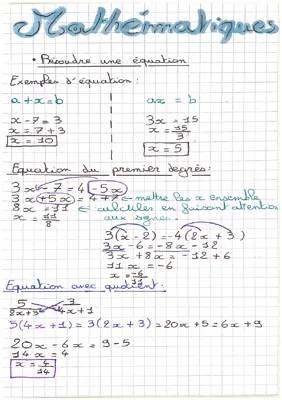 Mathématiques
• Résoudre une équation
Exemples d'équation :
a + x = b
ax = b
x - 7 = 3
x = 7 + 3
x = 10
3x = 15
x = 15/3
x = 5
Equation du premier degrés :
3x - 7 = 4 - 5x
3x + 5x = 4 + 7 ← mettre les x ensemble
8x = 11 ← calculer en faisant attention
x = 11/8 aux signes.
3(x - 2) = -4(2x + 3)
3x - 6 = -8x - 12
3x + 8x = -12 + 6
11x = -6
x = -6/11
Equation avec quotient :
5/2x+3 = 3/4x+1
5(4x + 1) = 3(2x + 3) = 20x + 5 = 6x + 9
20x - 6x = 9 - 5
14x = 4
x = 4/14